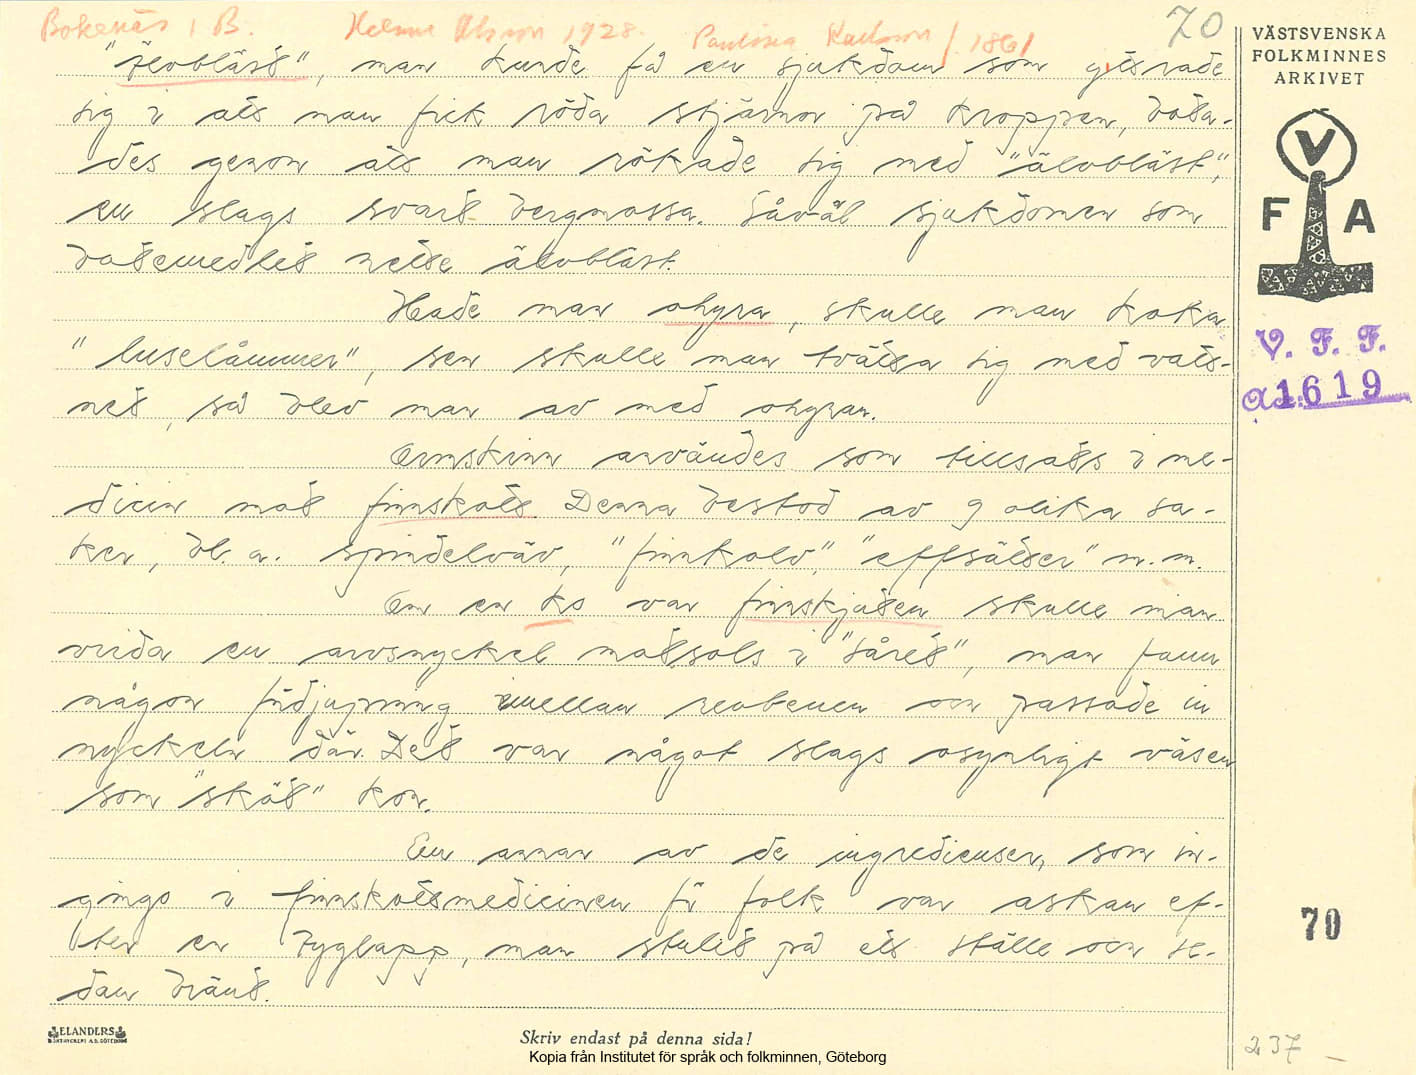 Bokenäs, B. Helmer Olsson 1928. Paulina Karlsson f. 1861
70
"Älvbläst", man kunde få en sjukdom som yttrade
sig i att man fick röda stjärnor på kroppen, bota-
des genom att man rökade sig med "älvbläst",
en slags svart bergmossa. Såväl sjukdomen som
botemedlet hette älvbläst.
Hade man ohyra, skulle man koka
"luselåmmer", sen skulle man tvätta sig med vatt-
net, så blev man av med ohyran.
Ormskinn användes som tillsats i me-
dicin mot finskott. Denna bestod av 9 olika sa-
ker, bl. a. spindelväv, "finkolv", "effsältser" m.m.
Om en ko var finskjuten skulle man
vrida en arvsnyckel motsols i "såret", man fann
någon fördjupning emellan revbenen och passade in
nyckeln där. Det var något slags osynligt väsen
som "sköt" kon.
En annan av de ingredienser, som in-
gingo i finskottsmedicinen för folk var askan ef-
ter en tyglapp, man stulit på ett ställe och se-
dan bränt.
VÄSTSVENSKA
FOLKMINNES
ARKIVET
V
F A
V. F. F.
Acc: 1619
70
237
ELANDERS
BOKTRYCKERI A.B. GÖTEBORG
Skriv endast på denna sida!
Kopia från Institutet för språk och folkminnen, Göteborg